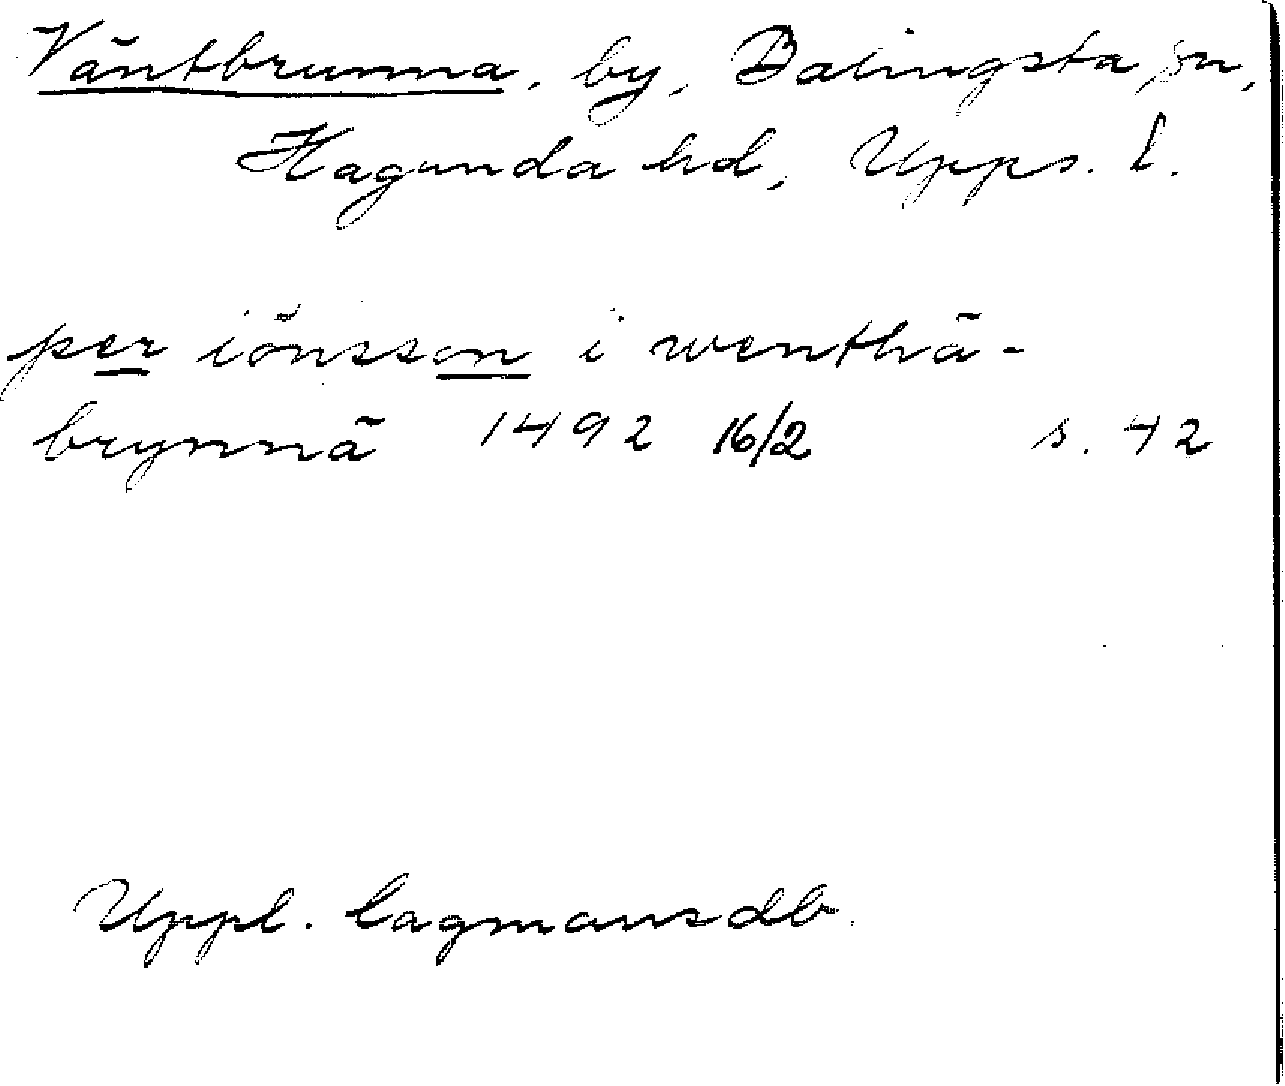 Väntbrunna, by, Balingsta sn,
Hagunda hd, Upps. l.
per iönsson i wenthä-
brynnä 1492 16/2 s. 42
Uppl. lagmansdb.